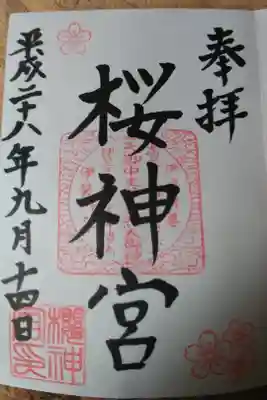 奉拝
桜神宮
平成二十八年九月十四日
櫻神宮印